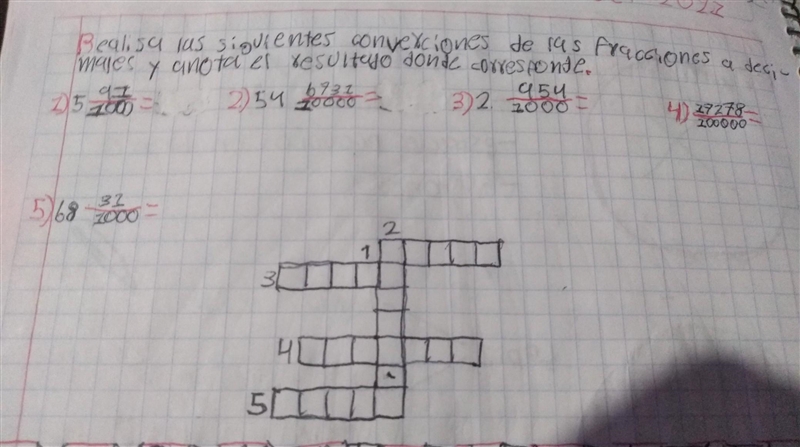 Realisa las siguientes converciones de las fracciones a deci-
males y anota el resultado donde corresponde.
1) 5 91/1000 = 2) 54 6931/10000 = 3) 2 954/1000 = 4) 29278/100000 =
5) 68 31/1000 =
2
1
3
4
5